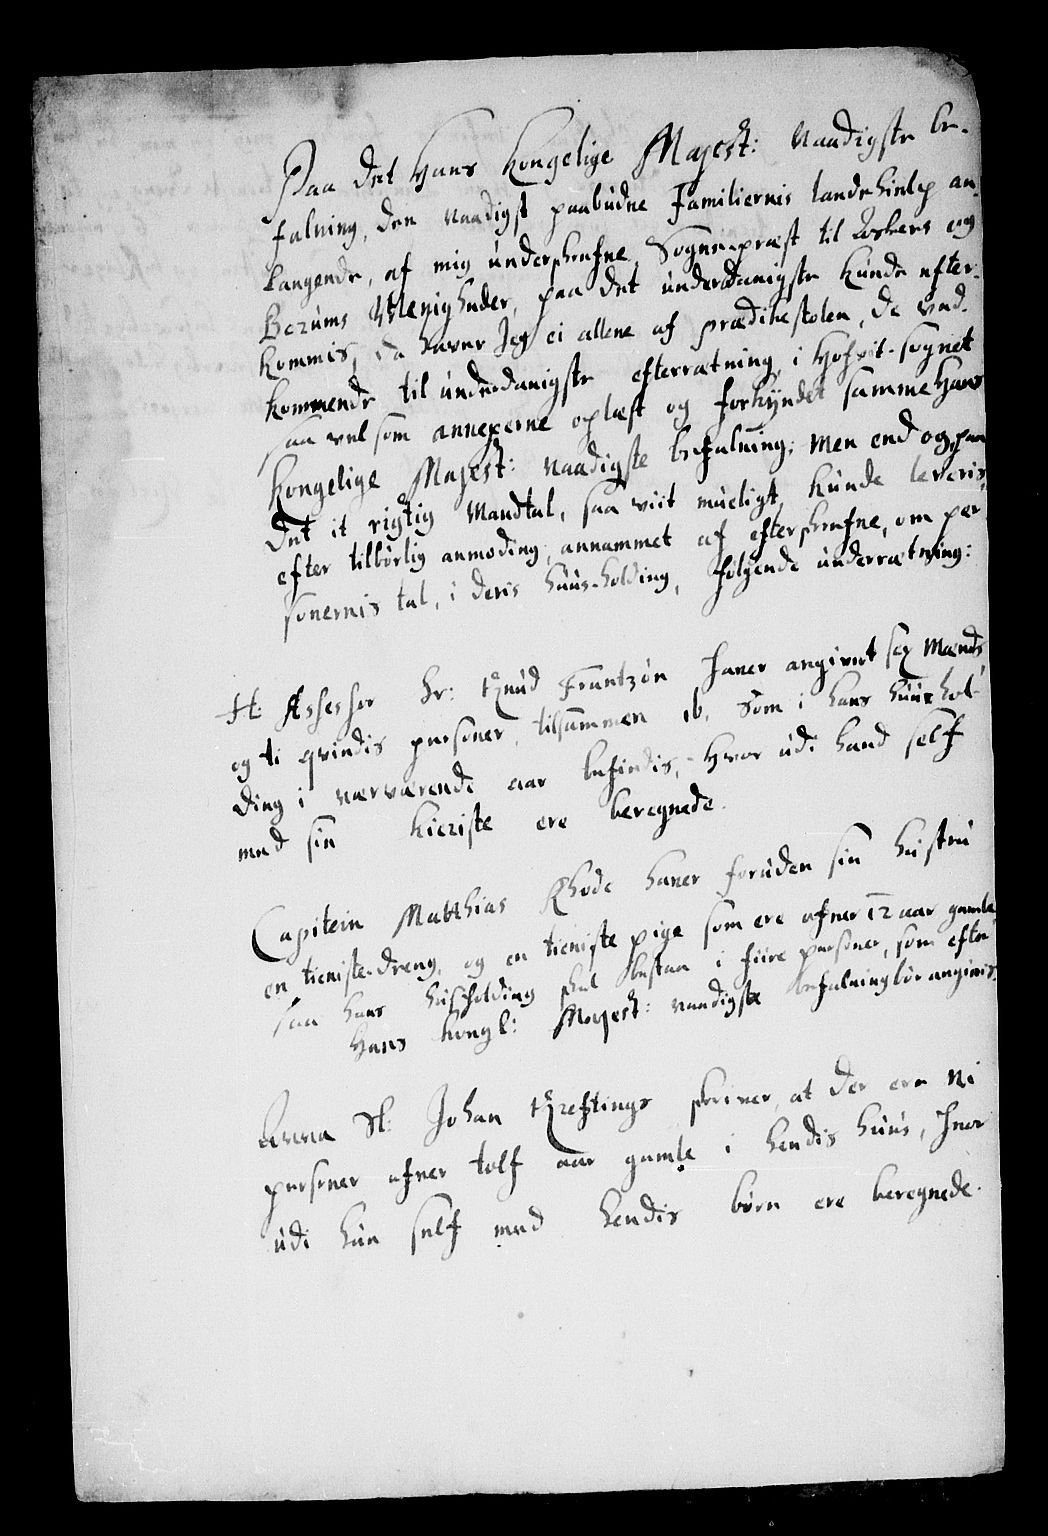 Paa det Hans Kongelige Majest: Naadigste be-
falning, den naadigst paabudne Familiernis landehielp an-
langende, af mig underskrefne, Sognepræst til Askers og
Berums Menigheder, paa det underdanigste kunde efter-
kommis, da haver Jeg ei allene af prædikestolen, de ved-
kommende til underdanigste efterretning, i Hofvit-sognet
saa vel som annexerne oplæst og forkÿndet samme Hans
Kongelige Majest: Naadigste befalning; Men end og, paa
det it rigtig Mandtal, saa viit müeligt, kunde leveris,
efter tilbørlig anmoding, annammet af efterskrefne, om per
sonernis tal, i deris huus-holding, følgende underrætning:
H: Assessor Hr: Knud Frantzøn hafver angivet sex Mænds
og ti qvindis personer, tilsammen 16, Som i hans huus hol-
ding i nærværende aar befindis, Hvor udi hand self
med sin kieriste ere beregnede.
Capitein Matthias Rhode hafver foruden sin hustru
en tieniste-dreng, og en tieniste pige som ere ofver 12 aar gamle
saa hans huusholding skal bestaa i fiire personer, som efter
Hans Kongl: Majest: naadigste befalning bør angivis.
Anna Sl: Johan Kreftings skriver, at der ere Ni
personer ofver tolf aar gamle i hendis huus, Hvor
udi hun self med hendis børn ere beregnede.